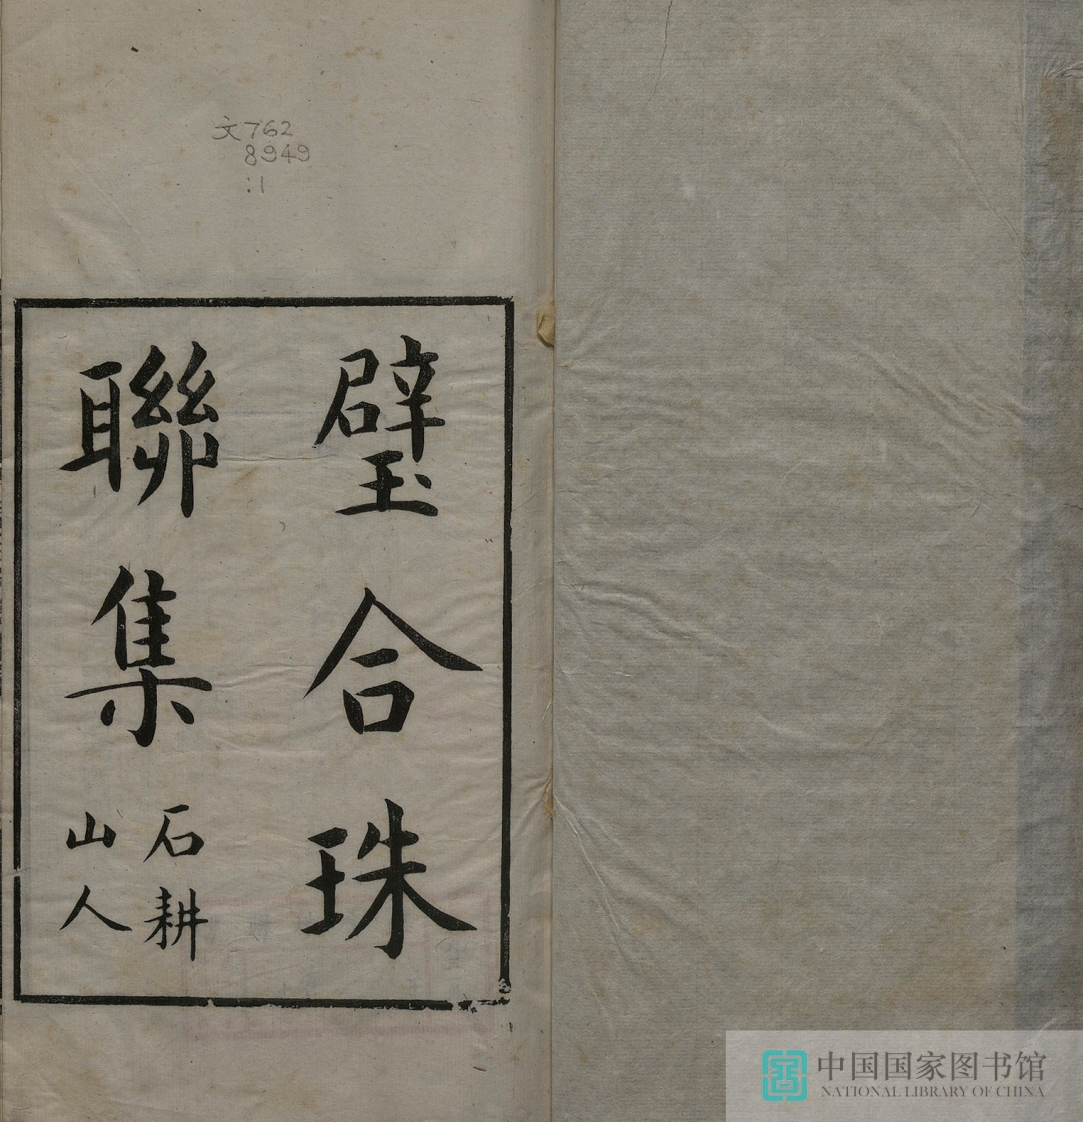 文762
8949
:1
璧合珠
聯集
石耕
山人
中国国家图书馆
NATIONAL LIBRARY OF CHINA